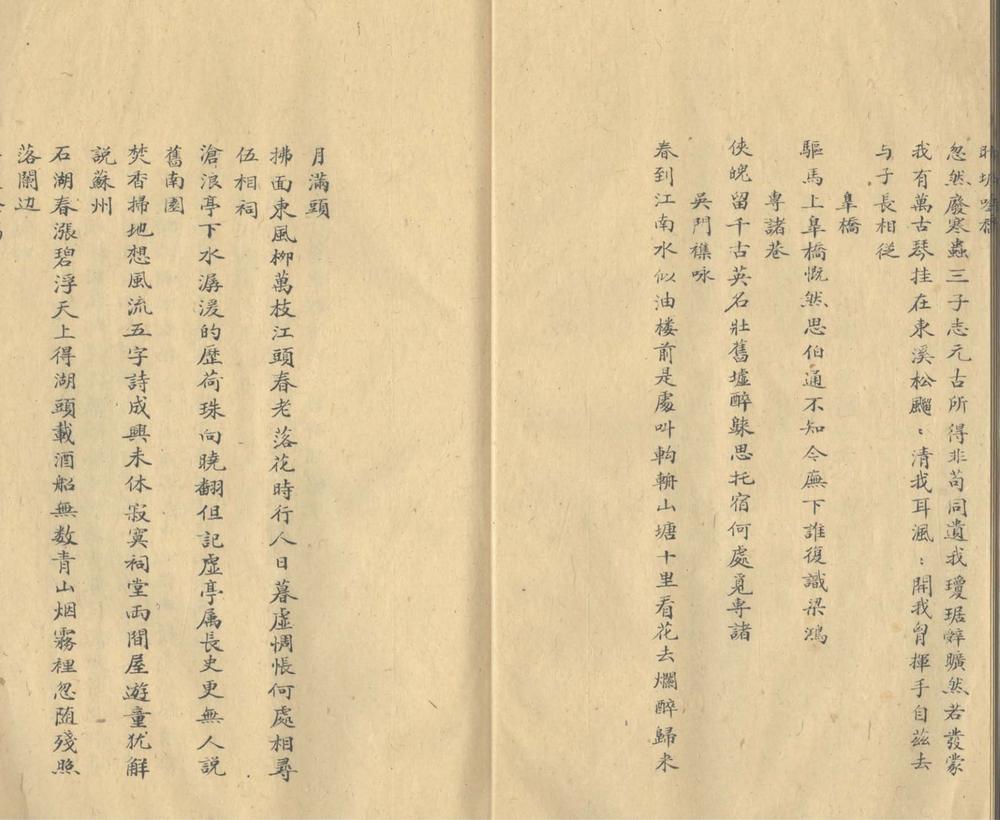 忽然廢寒蟲三子志元古所得非苟同遺我瓊琚辭曠然若發蒙
我有萬古琴挂在東溪松飀〻清我耳渢〻開我胷揮手自茲去
与子長相從
皐橋
驅馬上皐橋慨然思伯通不知令廡下誰復識梁鴻
專諸巷
俠晚留千古英名壯舊墟醉𮚐思托宿何處覓專諸
吳門襍咏
春到江南水似油楼前是處叫軥輈山塘十里看花去爛醉歸来
月滿頭
拂面東風柳萬枝江頭春老落花時行人日暮虛惆悵何處相尋
伍相祠
滄浪亭下水潺湲的歷荷珠向曉翻但記虛亭属長史更無人説
舊南園
焚香掃地想風流五字詩成興未休寂寞祠堂両間屋遊童犹解
説蘇州
石湖春漲碧浮天上得湖頭載酒船無数青山烟霧裡忽随殘照
落闌边